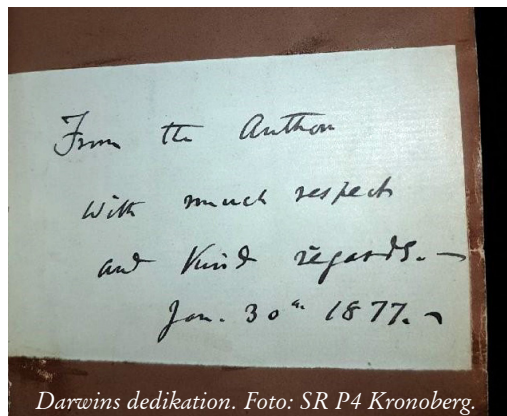 From the Author
with much respect
and kind regards.—
Jan. 30th 1877.—
Darwins dedikation. Foto: SR P4 Kronoberg.